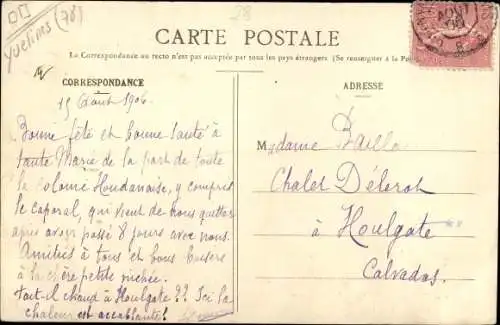 Yvelines (78)
28
CARTE POSTALE
La Correspondance au recto n'est pas acceptée par tous les pays étrangers (Se renseigner à la Poste)
CORRESPONDANCE
ADRESSE
15 Août 1906
Bonne fête et bonne santé à
tante Marie de la part de toute
la colonie Houdanaise, y compris
le caporal, qui vient de nous quitter
après avoir passé 8 jours avec nous.
Amitiés à tous et bons baisers
à la chère petite nichée.
Fait-il chaud à Houlgate ?? Ici la
chaleur est accablante!
Madame Bailly
Chalet Délerot
à Houlgate
Calvados.